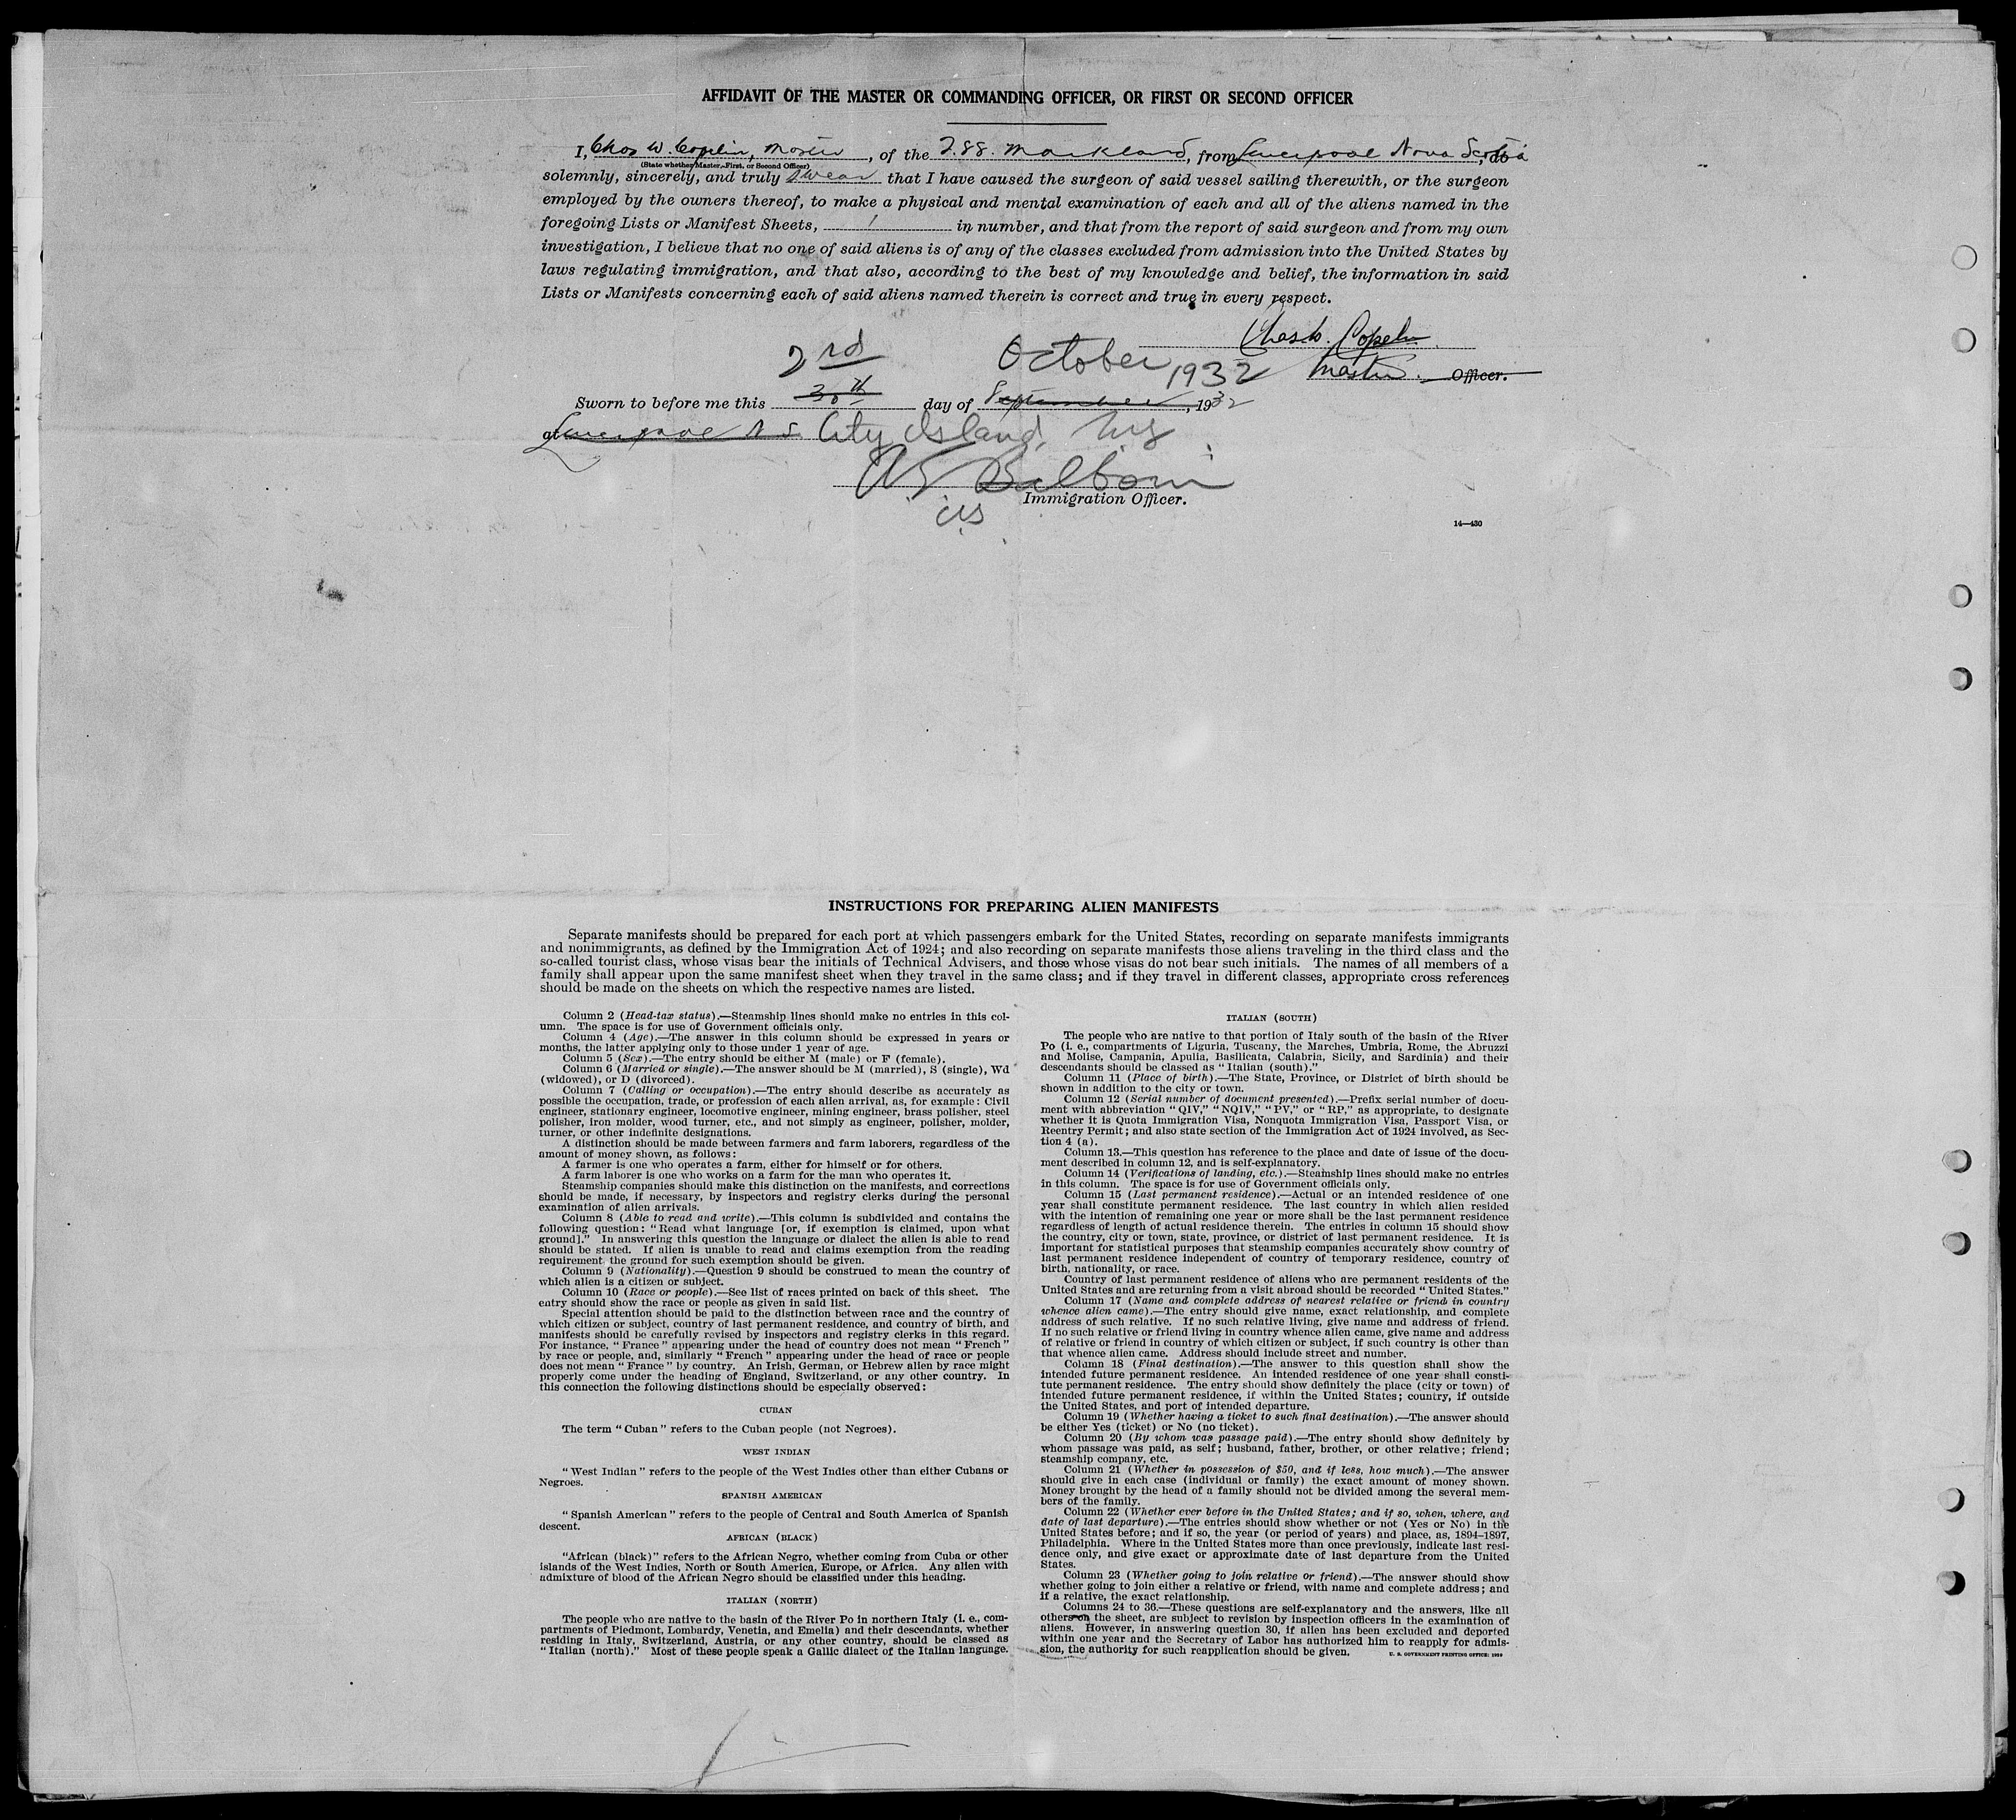 AFFIDAVIT OF THE MASTER OR COMMANDING OFFICER, OR FIRST OR SECOND OFFICER
I, Chas W. Copelin, Master, of the T.SS. Markland, from Liverpool Nova Scotia, do
(State whether Master, First, or Second Officer)
solemnly, sincerely, and truly swear that I have caused the surgeon of said vessel sailing therewith, or the surgeon
employed by the owners thereof, to make a physical and mental examination of each and all of the aliens named in the
foregoing Lists or Manifest Sheets, 1 in number, and that from the report of said surgeon and from my own
investigation, I believe that no one of said aliens is of any of the classes excluded from admission into the United States by
laws regulating immigration, and that also, according to the best of my knowledge and belief, the information in said
Lists or Manifests concerning each of said aliens named therein is correct and true in every respect.
Chas W. Copelin
2nd October 1932 Master. Officer.
Sworn to before me this 30th day of September, 1932
at Liverpool N S City Island, NY
Immigration Officer.
14—430
INSTRUCTIONS FOR PREPARING ALIEN MANIFESTS
Separate manifests should be prepared for each port at which passengers embark for the United States, recording on separate manifests immigrants
and nonimmigrants, as defined by the Immigration Act of 1924; and also recording on separate manifests those aliens traveling in the third class and the
so-called tourist class, whose visas bear the initials of Technical Advisers, and those whose visas do not bear such initials. The names of all members of a
family shall appear upon the same manifest sheet when they travel in the same class; and if they travel in different classes, appropriate cross references
should be made on the sheets on which the respective names are listed.
Column 2 (Head-tax status).—Steamship lines should make no entries in this col-
umn. The space is for use of Government officials only.
Column 4 (Age).—The answer in this column should be expressed in years or
months, the latter applying only to those under 1 year of age.
Column 5 (Sex).—The entry should be either M (male) or F (female).
Column 6 (Married or single).—The answer should be M (married), S (single), Wd
(widowed), or D (divorced).
Column 7 (Calling or occupation).—The entry should describe as accurately as
possible the occupation, trade, or profession of each alien arrival, as, for example: Civil
engineer, stationary engineer, locomotive engineer, mining engineer, brass polisher, steel
polisher, iron molder, wood turner, etc., and not simply as engineer, polisher, molder,
turner, or other indefinite designations.
A distinction should be made between farmers and farm laborers, regardless of the
amount of money shown, as follows:
A farmer is one who operates a farm, either for himself or for others.
A farm laborer is one who works on a farm for the man who operates it.
Steamship companies should make this distinction on the manifests, and corrections
should be made, if necessary, by inspectors and registry clerks during the personal
examination of alien arrivals.
Column 8 (Able to read and write).—This column is subdivided and contains the
following question: "Read what language [or, if exemption is claimed, upon what
ground]." In answering this question the language or dialect the alien is able to read
should be stated. If alien is unable to read and claims exemption from the reading
requirement, the ground for such exemption should be given.
Column 9 (Nationality).—Question 9 should be construed to mean the country of
which alien is a citizen or subject.
Column 10 (Race or people).—See list of races printed on back of this sheet. The
entry should show the race or people as given in said list.
Special attention should be paid to the distinction between race and the country of
which citizen or subject, country of last permanent residence, and country of birth, and
manifests should be carefully revised by inspectors and registry clerks in this regard.
For instance, "France" appearing under the head of country does not mean "French"
by race or people, and, similarly "French" appearing under the head of race or people
does not mean "France" by country. An Irish, German, or Hebrew alien by race might
properly come under the heading of England, Switzerland, or any other country. In
this connection the following distinctions should be especially observed:
CUBAN
The term "Cuban" refers to the Cuban people (not Negroes).
WEST INDIAN
"West Indian" refers to the people of the West Indies other than either Cubans or
Negroes.
SPANISH AMERICAN
"Spanish American" refers to the people of Central and South America of Spanish
descent.
AFRICAN (BLACK)
"African (black)" refers to the African Negro, whether coming from Cuba or other
islands of the West Indies, North or South America, Europe, or Africa. Any alien with
admixture of blood of the African Negro should be classified under this heading.
ITALIAN (NORTH)
The people who are native to the basin of the River Po in northern Italy (i. e., com-
partments of Piedmont, Lombardy, Venetia, and Emelia) and their descendants, whether
residing in Italy, Switzerland, Austria, or any other country, should be classed as
"Italian (north)." Most of these people speak a Gallic dialect of the Italian language.
ITALIAN (SOUTH)
The people who are native to that portion of Italy south of the basin of the River
Po (i. e., compartments of Liguria, Tuscany, the Marches, Umbria, Rome, the Abruzzi
and Molise, Campania, Apulia, Basilicata, Calabria, Sicily, and Sardinia) and their
descendants should be classed as "Italian (south)."
Column 11 (Place of birth).—The State, Province, or District of birth should be
shown in addition to the city or town.
Column 12 (Serial number of document presented).—Prefix serial number of docu-
ment with abbreviation "QIV," "NQIV," "PV," or "RP," as appropriate, to designate
whether it is Quota Immigration Visa, Nonquota Immigration Visa, Passport Visa, or
Reentry Permit; and also state section of the Immigration Act of 1924 involved, as Sec-
tion 4 (a).
Column 13.—This question has reference to the place and date of issue of the docu-
ment described in column 12, and is self-explanatory.
Column 14 (Verifications of landing, etc.).—Steamship lines should make no entries
in this column. The space is for use of Government officials only.
Column 15 (Last permanent residence).—Actual or an intended residence of one
year shall constitute permanent residence. The last country in which alien resided
with the intention of remaining one year or more shall be the last permanent residence
regardless of length of actual residence therein. The entries in column 15 should show
the country, city or town, state, province, or district of last permanent residence. It is
important for statistical purposes that steamship companies accurately show country of
last permanent residence independent of country of temporary residence, country of
birth, nationality, or race.
Country of last permanent residence of aliens who are permanent residents of the
United States and are returning from a visit abroad should be recorded "United States."
Column 17 (Name and complete address of nearest relative or friend in country
whence alien came).—The entry should give name, exact relationship, and complete
address of such relative. If no such relative living, give name and address of friend.
If no such relative or friend living in country whence alien came, give name and address
of relative or friend in country of which citizen or subject, if such country is other than
that whence alien came. Address should include street and number.
Column 18 (Final destination).—The answer to this question shall show the
intended future permanent residence. An intended residence of one year shall consti-
tute permanent residence. The entry should show definitely the place (city or town) of
intended future permanent residence, if within the United States; country, if outside
the United States, and port of intended departure.
Column 19 (Whether having a ticket to such final destination).—The answer should
be either Yes (ticket) or No (no ticket).
Column 20 (By whom was passage paid).—The entry should show definitely by
whom passage was paid, as self; husband, father, brother, or other relative; friend;
steamship company, etc.
Column 21 (Whether in possession of $50, and if less, how much).—The answer
should give in each case (individual or family) the exact amount of money shown.
Money brought by the head of a family should not be divided among the several mem-
bers of the family.
Column 22 (Whether ever before in the United States; and if so, when, where, and
date of last departure).—The entries should show whether or not (Yes or No) in the
United States before; and if so, the year (or period of years) and place, as, 1894–1897,
Philadelphia. Where in the United States more than once previously, indicate last resi-
dence only, and give exact or approximate date of last departure from the United
States.
Column 23 (Whether going to join relative or friend).—The answer should show
whether going to join either a relative or friend, with name and complete address; and
if a relative, the exact relationship.
Columns 24 to 36.—These questions are self-explanatory and the answers, like all
others on the sheet, are subject to revision by inspection officers in the examination of
aliens. However, in answering question 30, if alien has been excluded and deported
within one year and the Secretary of Labor has authorized him to reapply for admis-
sion, the authority for such reapplication should be given.
U. S. GOVERNMENT PRINTING OFFICE: 1929